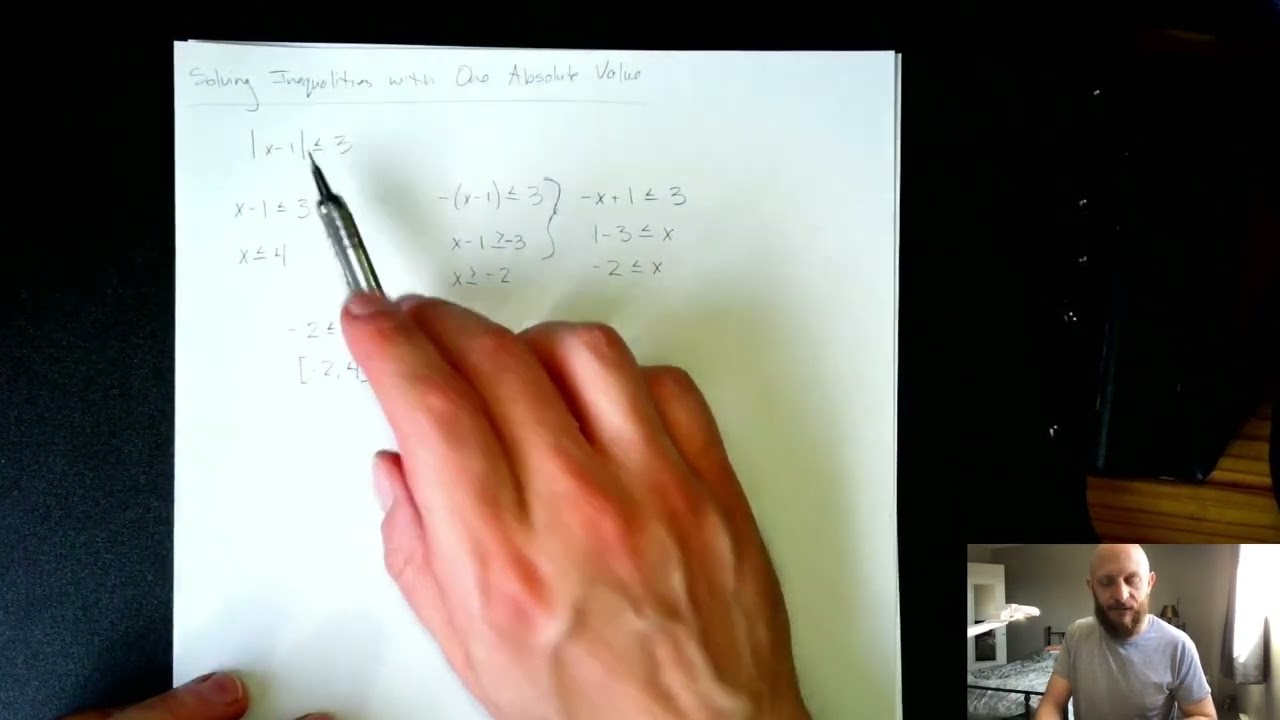 Solving Inequalities with One Absolute Value
|x-1| ≤ 3
x-1 ≤ 3
x ≤ 4
-(x-1) ≤ 3
x-1 ≥ -3
x ≥ -2
-x+1 ≤ 3
1-3 ≤ x
-2 ≤ x
-2 ≤
[-2, 4]